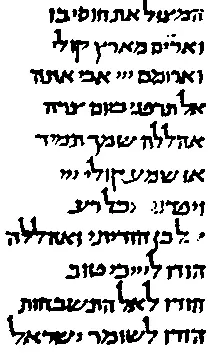 המציל את חוסי בו
וארים מארץ קולי
וארומם ייי אבי אתה
אל תרפני ביום צרה
אהללה שמך תמיד
אז שמע קולי ייי
מכל רע
כן הודיתי ואהללה
הודו לייי כי טוב
הודו לאל התשבחות
הודו לשומר ישראל